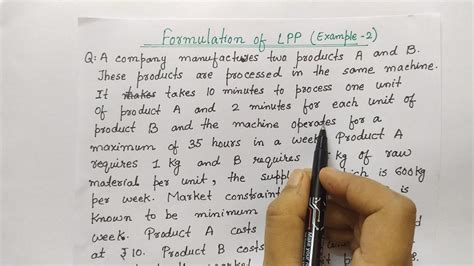 Formulation of LPP (Example-2)
Q: A company manufactures two products A and B.
These products are processed in the same machine.
It takes 10 minutes to process one unit
of product A and 2 minutes for each unit of
product B and the machine operates for a
maximum of 35 hours in a week. Product A
requires 1 kg and B requires kg of raw
material per unit, the supply which is 600kg
per week. Market constraint is
known to be minimum
week. Product A costs
at ₹10. Product B costs